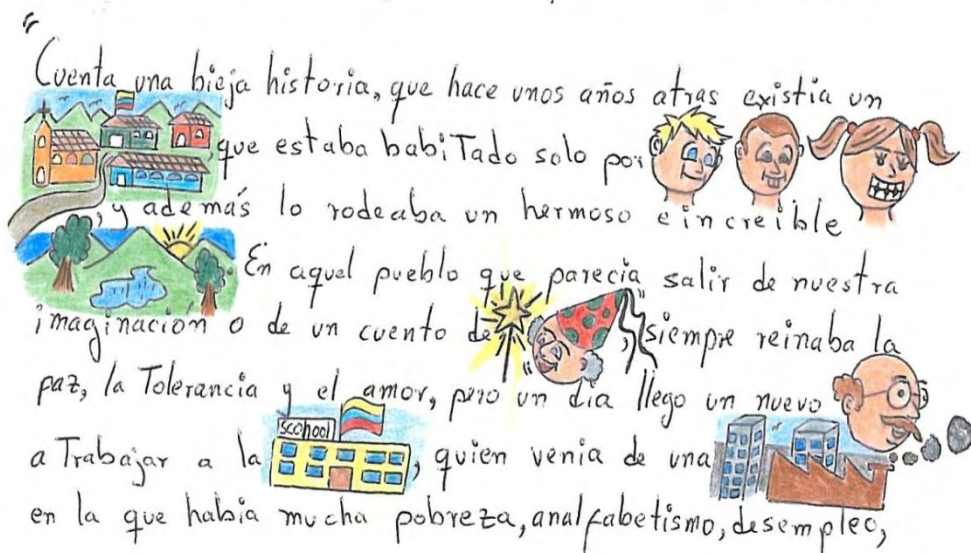 "
Cuenta una bieja historia, que hace unos años atras existia un
, que estaba babiTado solo por
, y además lo rodeaba un hermoso e increible
. En aquel pueblo que parecia salir de nuestra
imaginación o de un cuento de , siempre reinaba la
paz, la Tolerancia y el amor, pero un dia llego un nuevo
a Trabajar a la scohool , quien venia de una
en la que habia mucha pobreza, analfabetismo, desempleo,